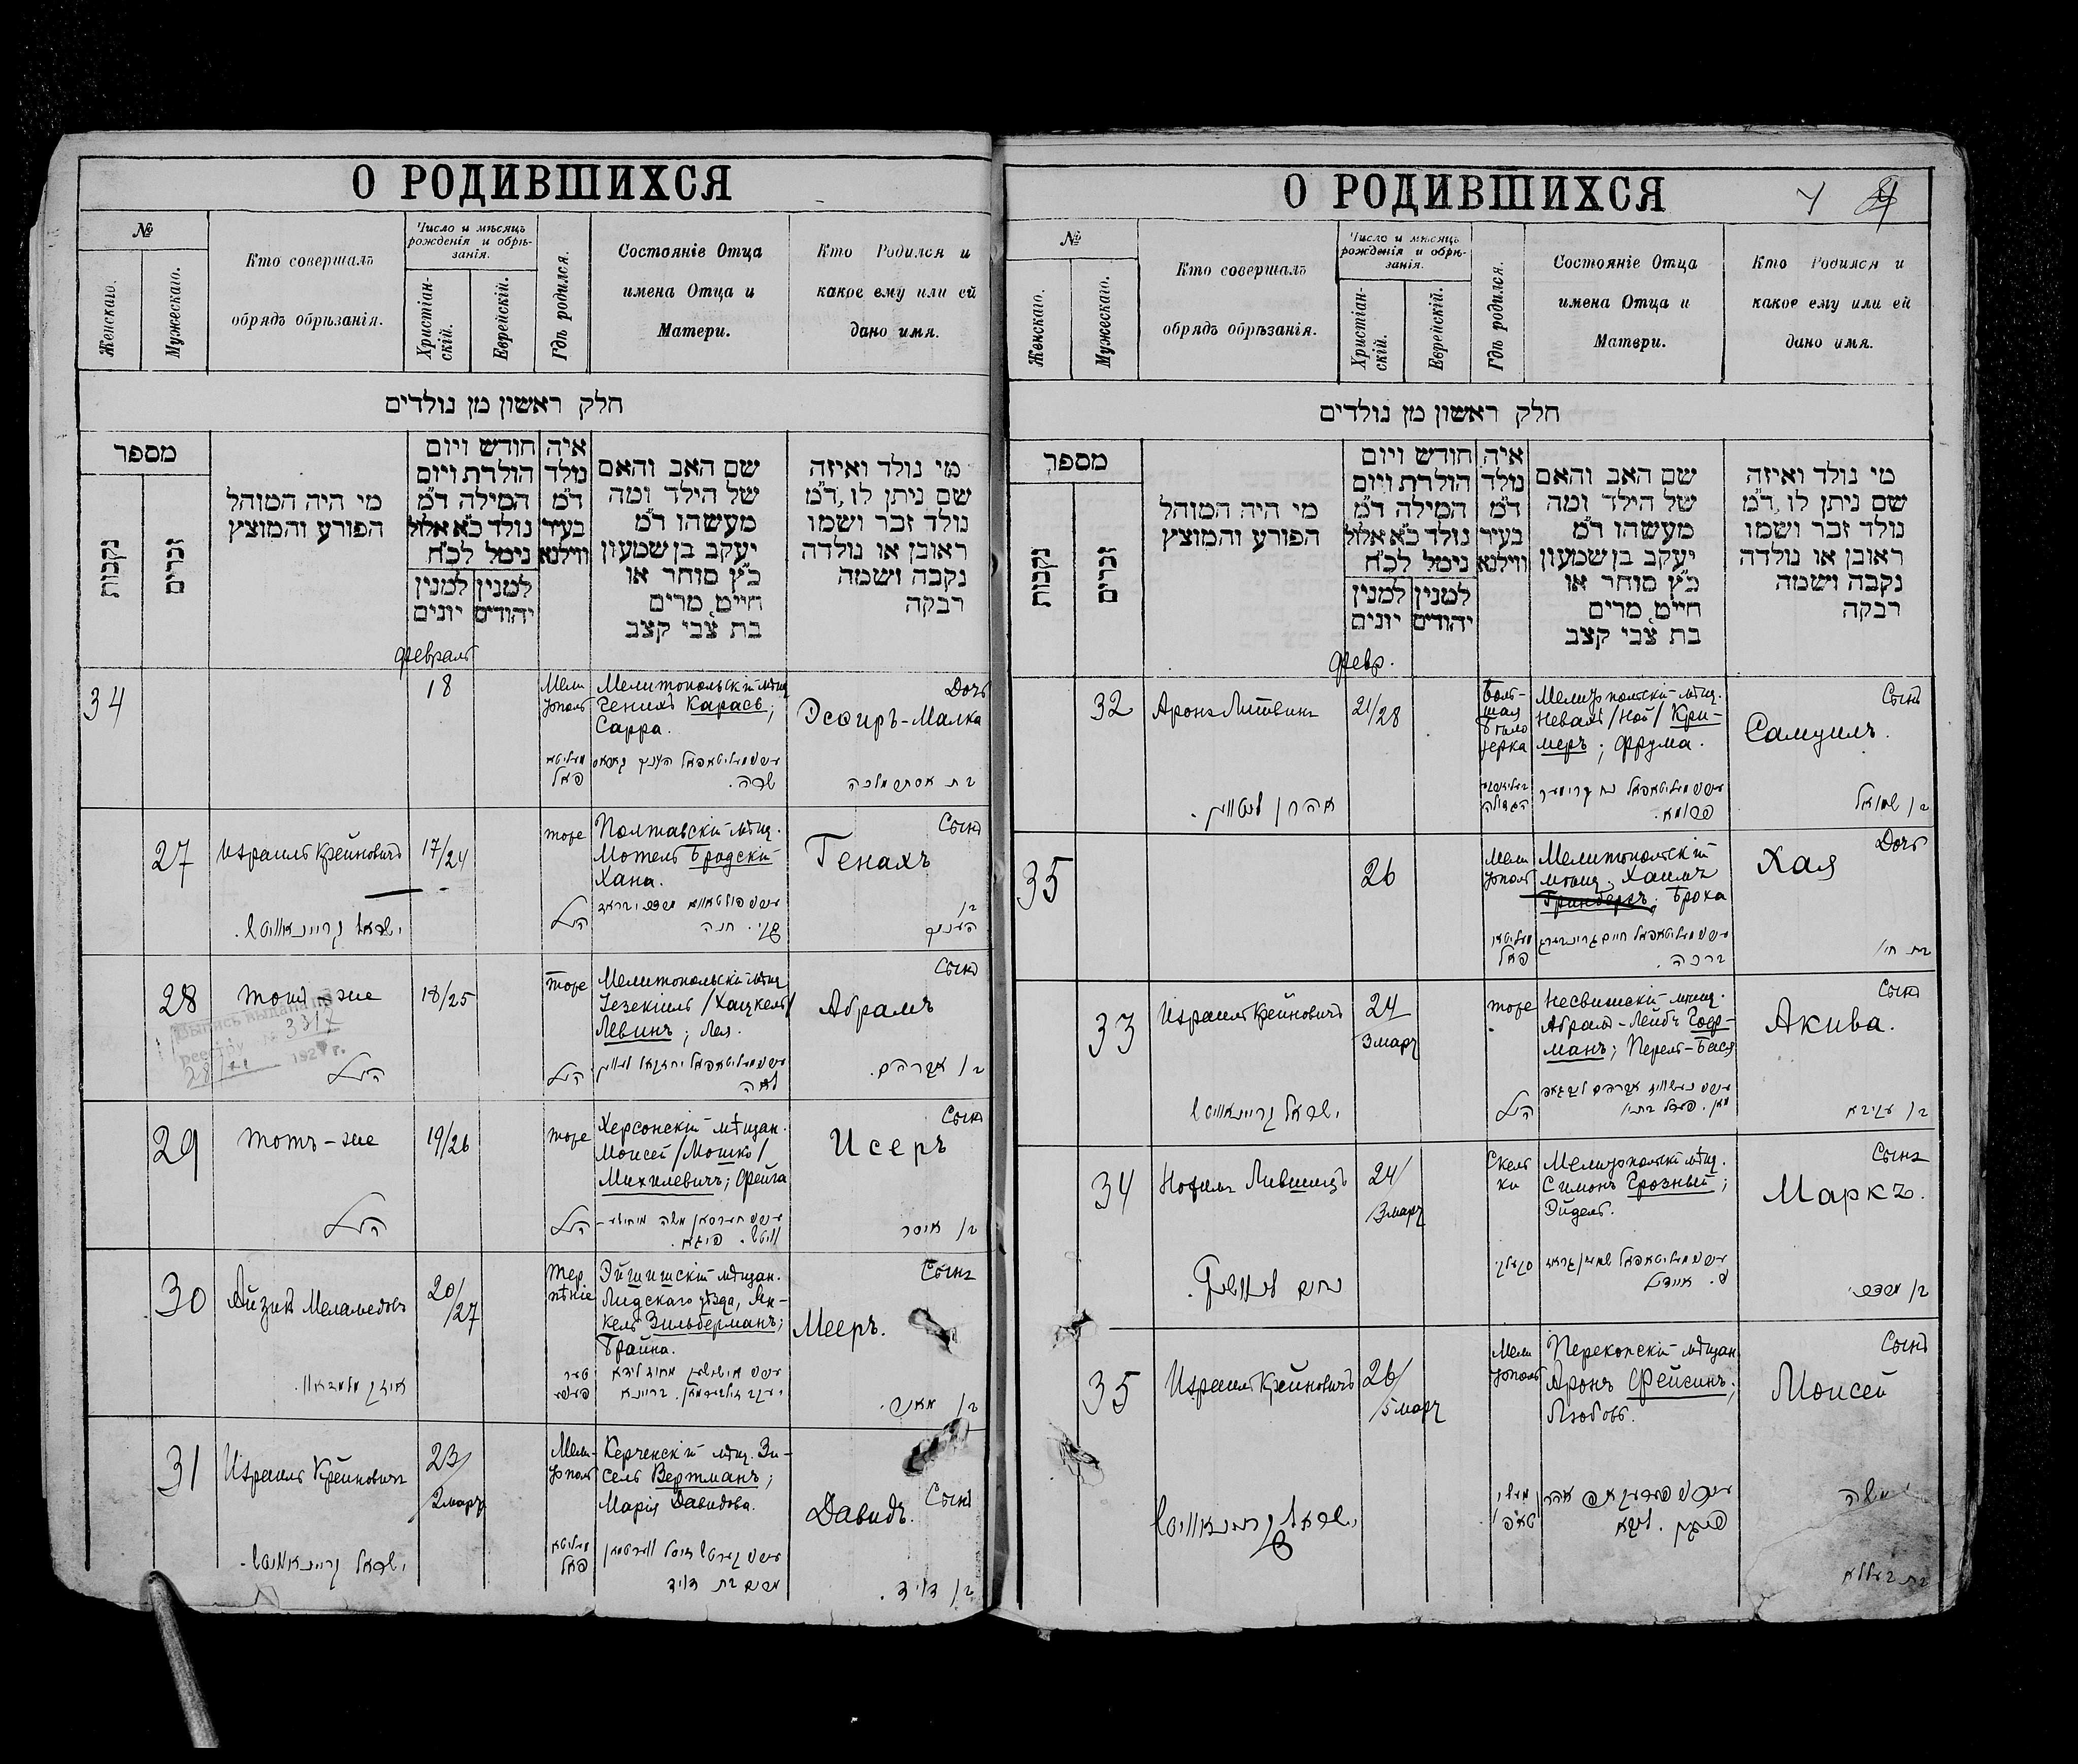 О РОДИВШИХСЯ
№
Женскаго.
Мужескаго.
Кто совершалъ
обрядъ обрѣзанія.
Число и мѣсяцъ
рожденія и обрѣ-
занія.
Христіан-
скій.
Еврейскій.
Гдѣ родился.
Состояніе Отца
имена Отца и
Матери.
Кто Родился и
какое ему или ей
дано имя.
חלק ראשון מן נולדים
מספר
נקבות
זכרים
מי היה המוהל
הפורע והמוצץ
חודש ויום
הולדת ויום
המילה ד״מ
נולד כ״א אלול
נימל לכ״ח
למנין
יונים
למנין
יהודים
איה
נולד
ד״מ
בעיר
ווילנא
שם האב והאם
של הילד ומה
מעשהו ד״מ
יעקב בן שמעון
כ״ץ סוחר או
חייט מרים
בת צבי קצב
מי נולד ואיזה
שם ניתן לו, ד״מ
נולד זכר ושמו
ראובן או נולדה
נקבה ושמה
רבקה
февраль
34
18
Мели
тополь
Мелитопольскій мѣщ.
Генихъ Карась;
Сарра.
Дочь
Эсфирь-Малка
שרה.
בת אסתר מלכה
27
Израиль Крейновичъ
17/24
тоже
Полтавскій мѣщ.
Мотель Бродскій
Хана.
Сынъ
Генахъ
ישראל קריינאוויטש.
הנ״ל
סקי. חנה
בן
העניך
28
тотъ-же
18/25
тоже
Мелитопольскій мѣщ.
Іезекіиль /Хацкель/
Левинъ; Лея.
Сынъ
Абрамъ
Выпись выдана по
реестру № 3317
28/ 192 г.
הנ״ל
הנ״ל
לאה
בן אברהם.
29
тотъ-же
19/26
тоже
Херсонскій мѣщан.
Моисей /Мошко/
Михилевичъ; Фейга
Сынъ
Исеръ
הנ״ל
הנ״ל
בן איסר
30
Айзикъ Меламедовъ
20/27
Тер.
пѣніе
Эйшишскій мѣщан.
Лидскаго уѣзда, Ян-
кель Зильберманъ;
Брайна.
Сынъ
Мееръ.
בן מאיר.
31
Израиль Крейновичъ
23/
2 мартъ
Мели-
тополь
Керченскій мѣщ. Зи-
сель Вертманъ;
Марія Давидова.
Сынъ
Давидъ.
ישראל קריינאוויטש.
מרים בת דוד
בן דוד.
О РОДИВШИХСЯ
4
№
Женскаго.
Мужескаго.
Кто совершалъ
обрядъ обрѣзанія.
Число и мѣсяцъ
рожденія и обрѣ-
занія.
Христіан-
скій.
Еврейскій.
Гдѣ родился.
Состояніе Отца
имена Отца и
Матери.
Кто Родился и
какое ему или ей
дано имя.
חלק ראשון מן נולדים
מספר
נקבות
זכרים
מי היה המוהל
הפורע והמוצץ
חודש ויום
הולדת ויום
המילה ד״מ
נולד כ״א אלול
נימל לכ״ח
למנין
יונים
למנין
יהודים
איה
נולד
ד״מ
בעיר
ווילנא
שם האב והאם
של הילד ומה
מעשהו ד״מ
יעקב בן שמעון
כ״ץ סוחר או
חייט מרים
בת צבי קצב
מי נולד ואיזה
שם ניתן לו, ד״מ
נולד זכר ושמו
ראובן או נולדה
נקבה ושמה
רבקה
февр.
32
Аронъ Литвинъ
21/28
Боль-
шая
Бѣло
зерка
Мелитопольскій мѣщ.
Невахъ /Ной/ Кри-
меръ; Фрума.
Сынъ
Самуилъ.
אהרן ליטווין.
פרומא.
בן שמואל
35
26
Мели
тополь
Мелитопольскій
мѣщ. Хаимъ
Гринбергъ; Броха
Дочь
Хая
ברכה.
בת חי׳
33
Израиль Крейновичъ
24
3 мартъ
тоже
Несвижскій мѣщ.
Абрамъ-Лейбъ Гоф-
манъ; Перель-Бася
Сынъ
Акива.
ישראל קריינאוויטש
הנ״ל
בן עקיבא
34
Нофиль Лившицъ
24/
3 мартъ
Скель
ки
Мелитопольскій мѣщ.
Симонъ Грозный;
Эйдель.
Сынъ
Маркъ.
בן מרדכי.
35
Израиль Крейновичъ
26/
5 мартъ
Мели
тополь
Перекопскій мѣщан.
Аронъ Фейгинъ;
Любовь.
Сынъ
Моисей
ישראל קריינאוויטש
משה